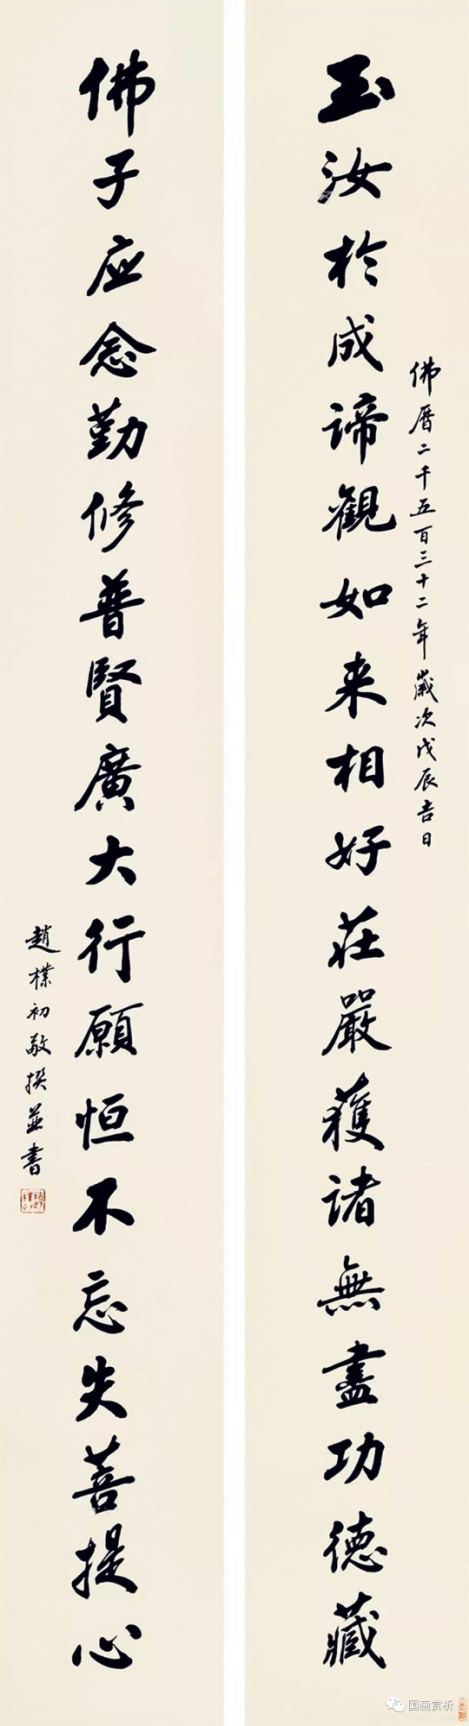 佛曆二千五百三十二年歲次戊辰吉日
玉汝於成諦觀如来相好莊嚴獲诸無盡功德藏
佛子应念勤修普賢廣大行願恒不忘失菩提心
趙樸初敬撰並書
国画赏析